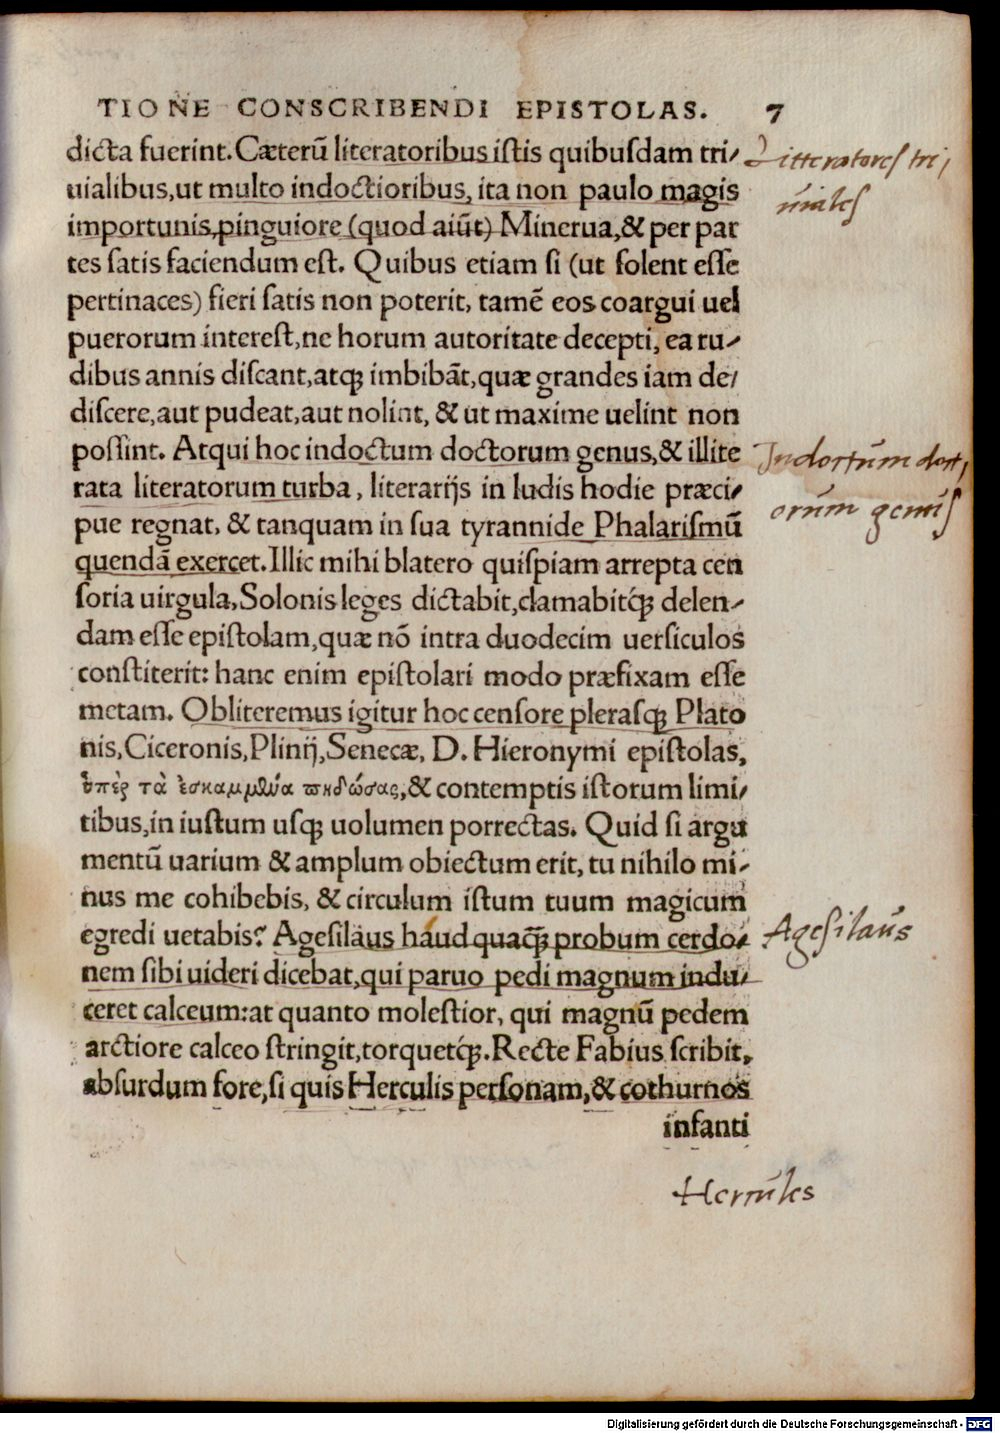 TIONE CONSCRIBENDI EPISTOLAS. 7
dicta fuerint. Cæterũ literatoribus istis quibusdam tri/
uialibus, ut multo indoctioribus, ita non paulo magis
importunis, pinguiore (quod aiũt) Minerua, & per par
tes satis faciendum est. Quibus etiam si (ut solent esse
pertinaces) fieri satis non poterit, tamẽ eos coargui uel
puerorum interest, ne horum autoritate decepti, ea ru/
dibus annis discant, atq; imbibãt, quæ grandes iam de/
discere, aut pudeat, aut nolint, & ut maxime uelint non
possint. Atqui hoc indoctum doctorum genus, & illite
rata literatorum turba, literarijs in ludis hodie præci/
pue regnat, & tanquam in sua tyrannide Phalarismũ
quendã exercet. Illic mihi blatero quispiam arrepta cen
soria uirgula, Solonis leges dictabit, clamabitq́; delen/
dam esse epistolam, quæ nõ intra duodecim uersiculos
constiterit: hanc enim epistolari modo præfixam esse
metam. Obliteremus igitur hoc censore plerasq; Plato
nis, Ciceronis, Plinij, Senecæ, D. Hieronymi epistolas,
ὑπὲρ τὰ ἐσκαμμθύα πηδώσας, & contemptis istorum limi/
tibus, in iustum usq; uolumen porrectas. Quid si argu
mentũ uarium & amplum obiectum erit, tu nihilo mi/
nus me cohibebis, & circulum istum tuum magicum
egredi uetabis? Agesilaus haud quaq̃; probum cerdo/
nem sibi uideri dicebat, qui paruo pedi magnum indu/
ceret calceum: at quanto molestior, qui magnũ pedem
arctiore calceo stringit, torquetq́;. Recte Fabius scribit,
absurdum fore, si quis Herculis personam, & cothurnos
infanti
Litteratores tri,
uiales
Indoctum doct,
orum genus
Agesilaus
Hercules
Digitalisierung gefördert durch die Deutsche Forschungsgemeinschaft - DFG